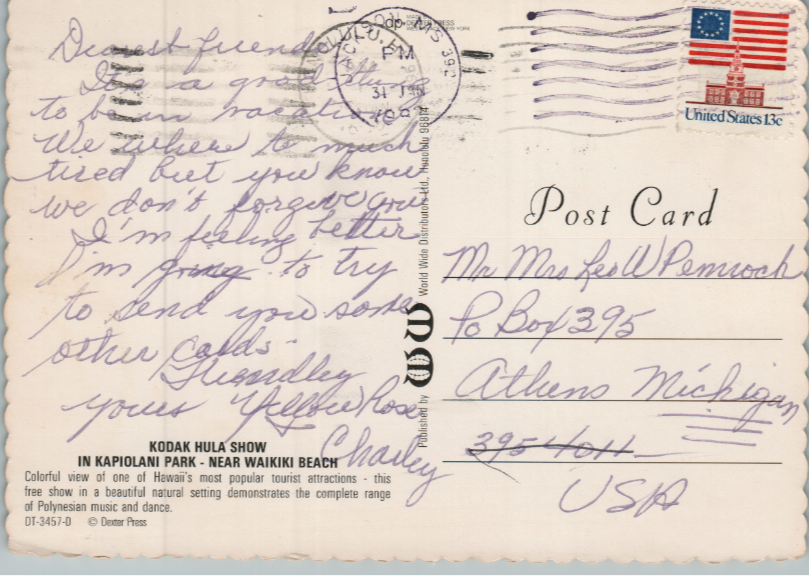 Dearest friends
It's a good thing
to be in vacation
We where to much
tired but you know
we don't forgive you
I'm feeling better
I'm going to try
to send you some
other cards.
Friendley
yours Yellow Rose
Charley
KODAK HULA SHOW
IN KAPIOLANI PARK - NEAR WAIKIKI BEACH
Colorful view of one of Hawaii's most popular tourist attractions - this
free show in a beautiful natural setting demonstrates the complete range
of Polynesian music and dance.
DT-3457-D © Dexter Press
Published by WW World Wide Distributors Ltd., Honolulu 96814
DEXTER PRESS
MS 392
PM
31 JAN
United States 13c
Post Card
Mr Mrs Leo W Pemroch
Po Box 395
Athens Michigan
395 4011
USA